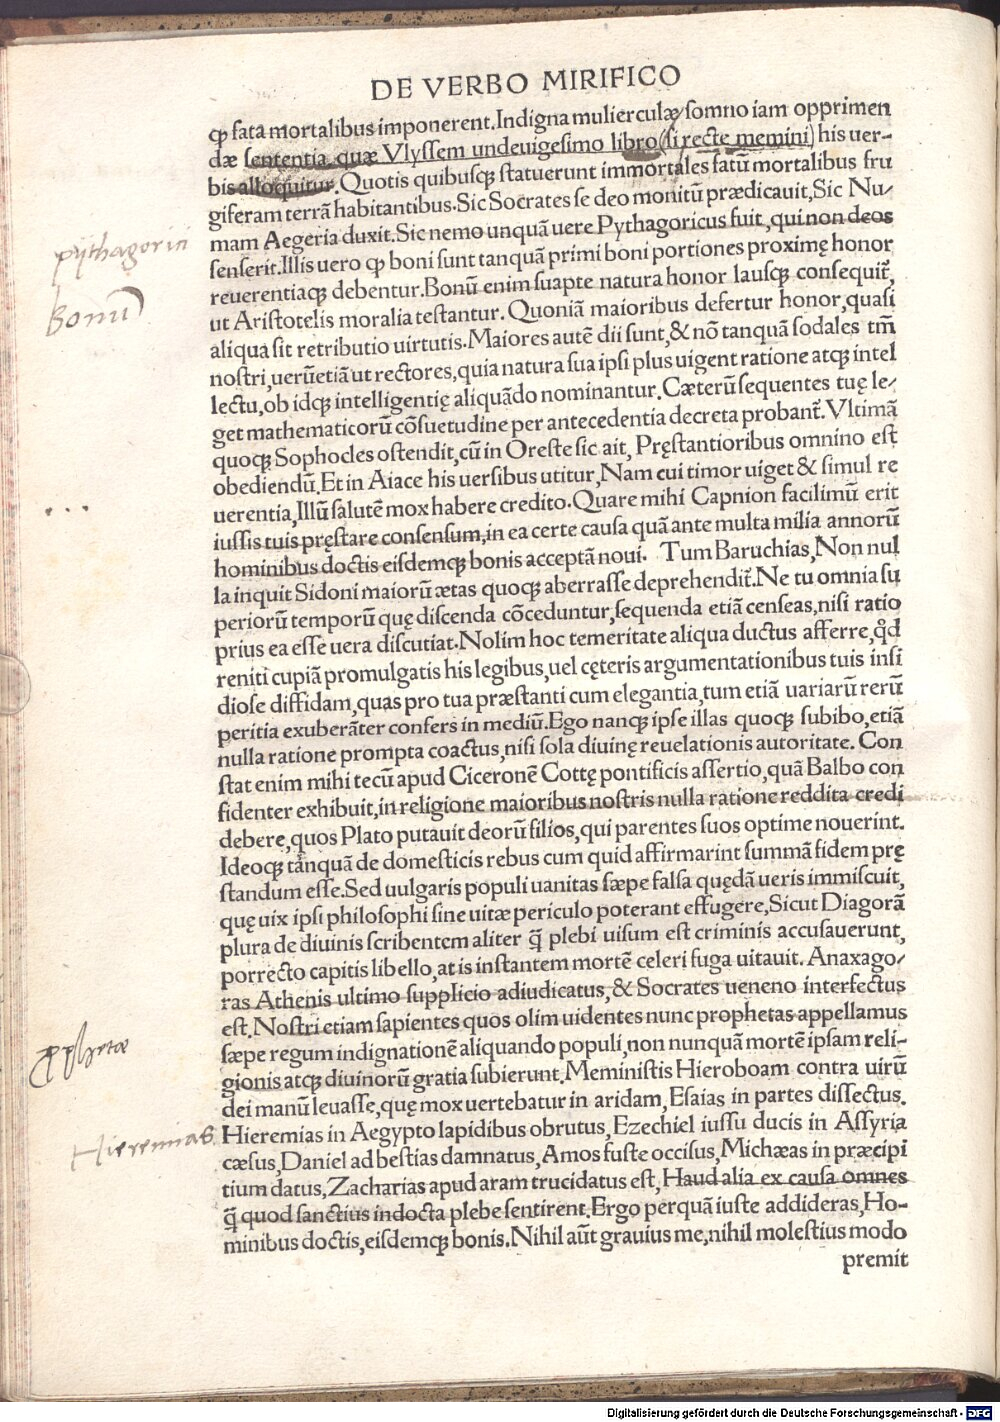 DE VERBO MIRIFICO
ꝙ fata mortalibus imponerent. Indigna mulierculæ somno iam opprimen
dæ sententia, quæ Vlyssem undeuigesimo libro (si recte memini) his uer-
bis alloquitur. Quotis quibusqꝫ statuerunt immortales fatū mortalibus fru
giferam terrā habitantibus. Sic Socrates se deo monitū prædicauit, Sic Nu/
mam Aegeria duxit. Sic nemo unquā uere Pythagoricus fuit, qui non deos
senserit. Illis uero ꝙ boni sunt tanquā primi boni portiones proximę honor
reuerentiaqꝫ debentur. Bonū enim suapte natura honor lausqꝫ consequit̃,
ut Aristotelis moralia testantur. Quoniā maioribus defertur honor, quasi
aliqua sit retributio uirtutis. Maiores autē dii sunt, & nō tanquā sodales tm̄
nostri, uerū etiā ut rectores, quia natura sua ipsi plus uigent ratione atqꝫ intel
lectu, ob idqꝫ intelligentię aliquādo nominantur. Cæterū sequentes tuę le/
get mathematicorū cōsuetudine per antecedentia decreta probant̃. Vltimā
quoqꝫ Sophocles ostendit, cū in Oreste sic ait, Pręstantioribus omnino est
obediendū. Et in Aiace his uersibus utitur, Nam cui timor uiget & simul re
uerentia, Illū salutē mox habere credito. Quare mihi Capnion facilimū erit
iussis tuis pręstare consensum, in ea certe causa quā ante multa milia annorū
hominibus doctis eisdemqꝫ bonis acceptā noui. Tum Baruchias, Non nul
la inquit Sidoni maiorū ætas quoqꝫ aberrasse deprehendit̃. Ne tu omnia su
periorū temporū quę discenda cōceduntur, sequenda etiā censeas, nisi ratio
prius ea esse uera discutiat. Nolim hoc temeritate aliqua ductus afferre, qd̊
reniti cupiā promulgatis his legibus, uel cęteris argumentationibus tuis insi
diose diffidam, quas pro tua præstanti cum elegantia, tum etiā uariarū rerū
peritia exuberāter confers in mediū. Ego nanqꝫ ipse illas quoqꝫ subibo, etiā
nulla ratione prompta coactus, nisi sola diuinę reuelationis autoritate. Con
stat enim mihi tecū apud Ciceronē Cottę pontificis assertio, quā Balbo con
fidenter exhibuit, in religione maioribus nostris nulla ratione reddita credi
debere, quos Plato putauit deorū filios, qui parentes suos optime nouerint.
Ideoqꝫ tanquā de domesticis rebus cum quid affirmarint summā fidem prę
standum esse. Sed uulgaris populi uanitas sæpe falsa quędā ueris immiscuit,
quę uix ipsi philosophi sine uitæ periculo poterant effugere, Sicut Diagorā
plura de diuinis scribentem aliter q̄ plebi uisum est criminis accusauerunt,
porrecto capitis libello, at is instantem mortē celeri fuga uitauit. Anaxago/
ras Athenis ultimo supplicio adiudicatus, & Socrates ueneno interfectus
est. Nostri etiam sapientes quos olim uidentes nunc prophetas appellamus
sæpe regum indignationē aliquando populi, non nunquā mortē ipsam reli-
gionis atqꝫ diuinorū gratia subierunt. Meministis Hieroboam contra uirū
dei manū leuasse, quę mox uertebatur in aridam, Esaias in partes dissectus.
Hieremias in Aegypto lapidibus obrutus, Ezechiel iussu ducis in Assyria
cæsus, Daniel ad bestias damnatus, Amos fuste occisus, Michæas in præcipi
tium datus, Zacharias apud aram trucidatus est, Haud alia ex causa omnes
q̄ quod sanctius indocta plebe sentirent. Ergo perquā iuste addideras, Ho-
minibus doctis, eisdemqꝫ bonis. Nihil aūt grauius me, nihil molestius modo
premit
pythagorici
Bonū
ꝓphetæ
Hieremias
Digitalisierung gefördert durch die Deutsche Forschungsgemeinschaft - DFG